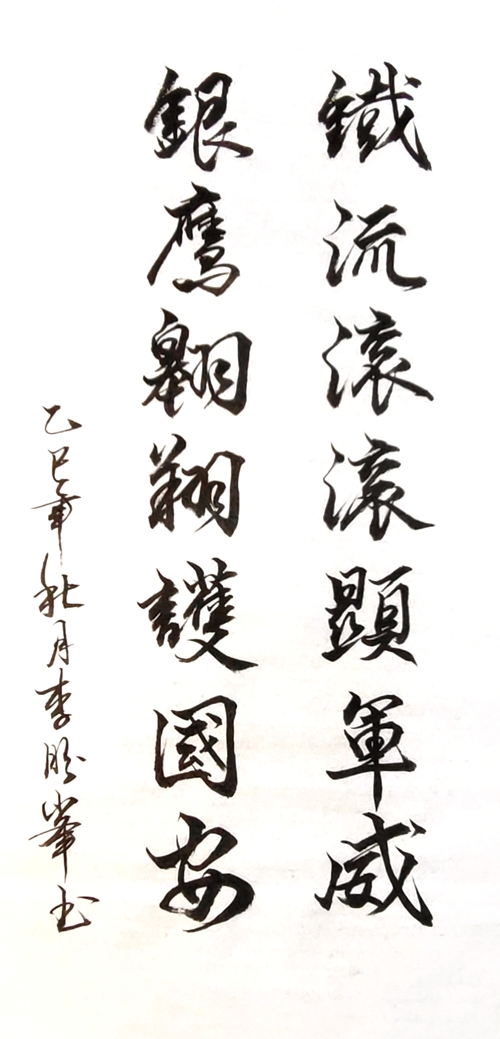 鐵流滾滾顯軍威
銀鷹翱翔護國安
乙巳年秋月李胜峯书